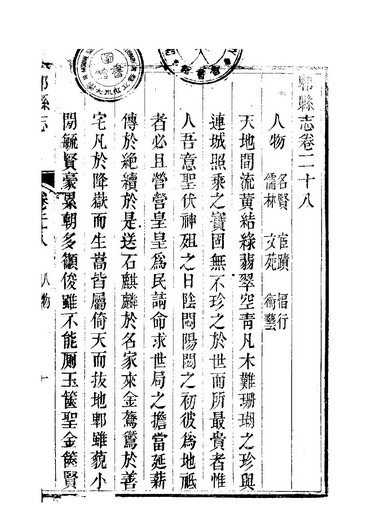 郫縣志卷二十八
人物 名賢 宦蹟 儒林 文苑
天地間流黃結綠翡翠空青凡木難珊瑚之珍與
連城照乘之寶固無不珍之於世而所最貴者惟
人吾意聖伏神徂之日陰悶陽閟之初彼為地祗
者必且營營皇皇為民請命求世局之擔當延薪
傳於絕續於是送石麒麟於名家來金鸑鷟於善
宅凡於降嶽而生嵩皆屬倚天而拔地郫雖藐小
閒毓賢豪累朝多顴俊雖不能廁玉篋聖金篋賢
郫縣志
卷二十八
人物